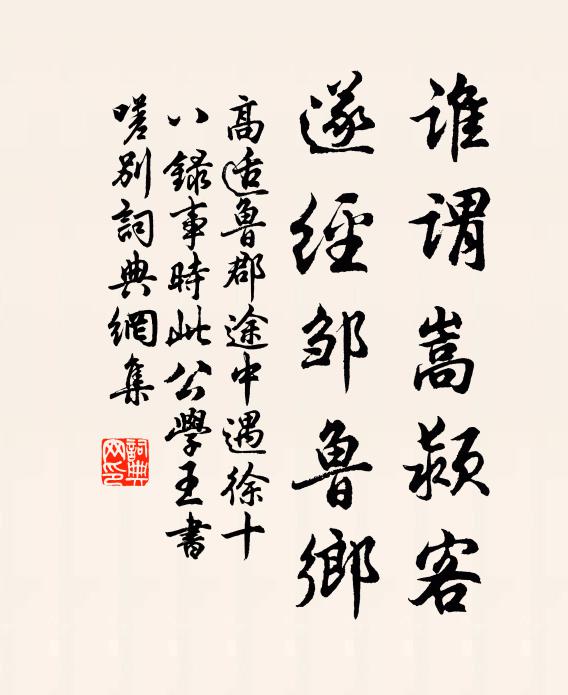 誰謂嵩潁客
遂經邹魯鄉
高适魯郡途中遇徐十
八錄事時此公學王書
嗟別詞典網集
詞典网印